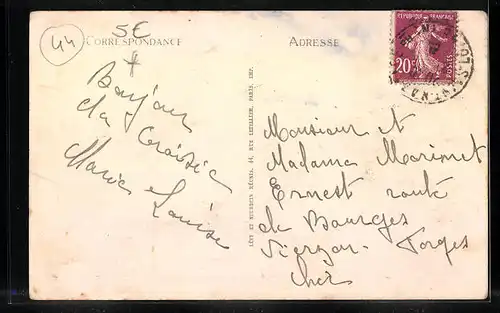 44
5€
CORRESPONDANCE
ADRESSE
REPUBLIQUE FRANÇAISE
20
POSTES
Bonjour
du Croisic
Marie Louise
LÉVY ET NEURDEIN RÉUNIS, 44, RUE LETELLIER, PARIS. IMP.
Monsieur et
Madame
Ernest route
de Bourges
Vierzon Forges
Cher